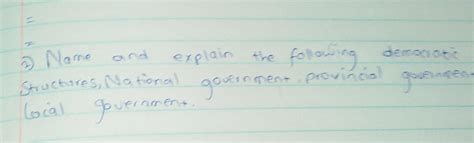 =
=
② Name and explain the following democratic
Structures, National government, provincial governmen
Local government.